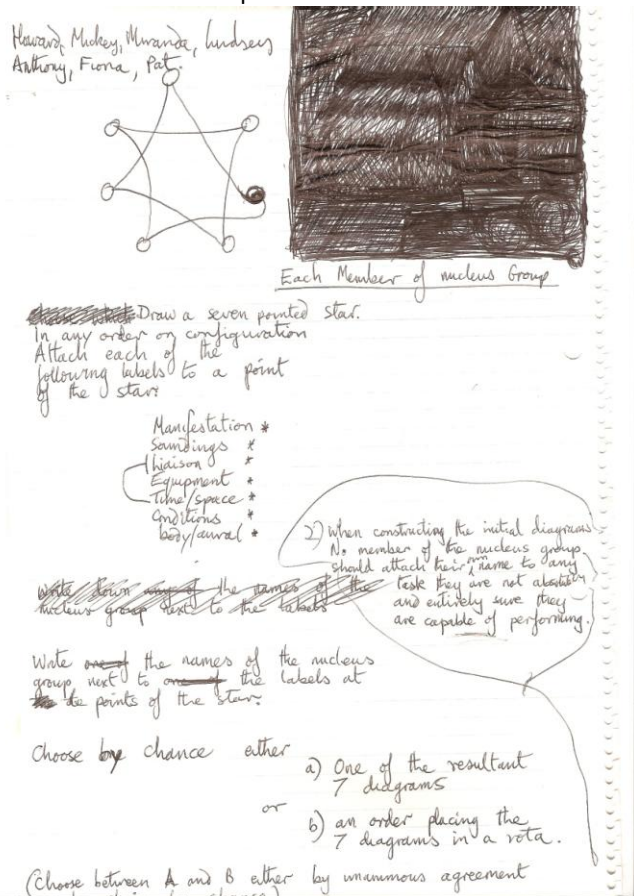 Howard, Mickey, Miranda, Lindsey
Anthony, Fiona, Pat.
Each Member of nucleus Group
Draw a seven pointed star.
In any order or configuration
Attach each of the
following labels to a point
of the star:
Manifestation *
Soundings *
Liaison *
Equipment *
Time/space *
Conditions *
body/aural *
2) When constructing the initial diagrams
No member of the nucleus group
should attach their own name to any
task they are not absolutely
and entirely sure they
are capable of performing.
Write down any of the names of the
nucleus group next to the labels
Write one of the names of the nucleus
group next to one of the labels at
the points of the star.
Choose by chance either
a) One of the resultant
7 diagrams
or
b) an order placing the
7 diagrams in a rota.
(Choose between A and B either by unanimous agreement